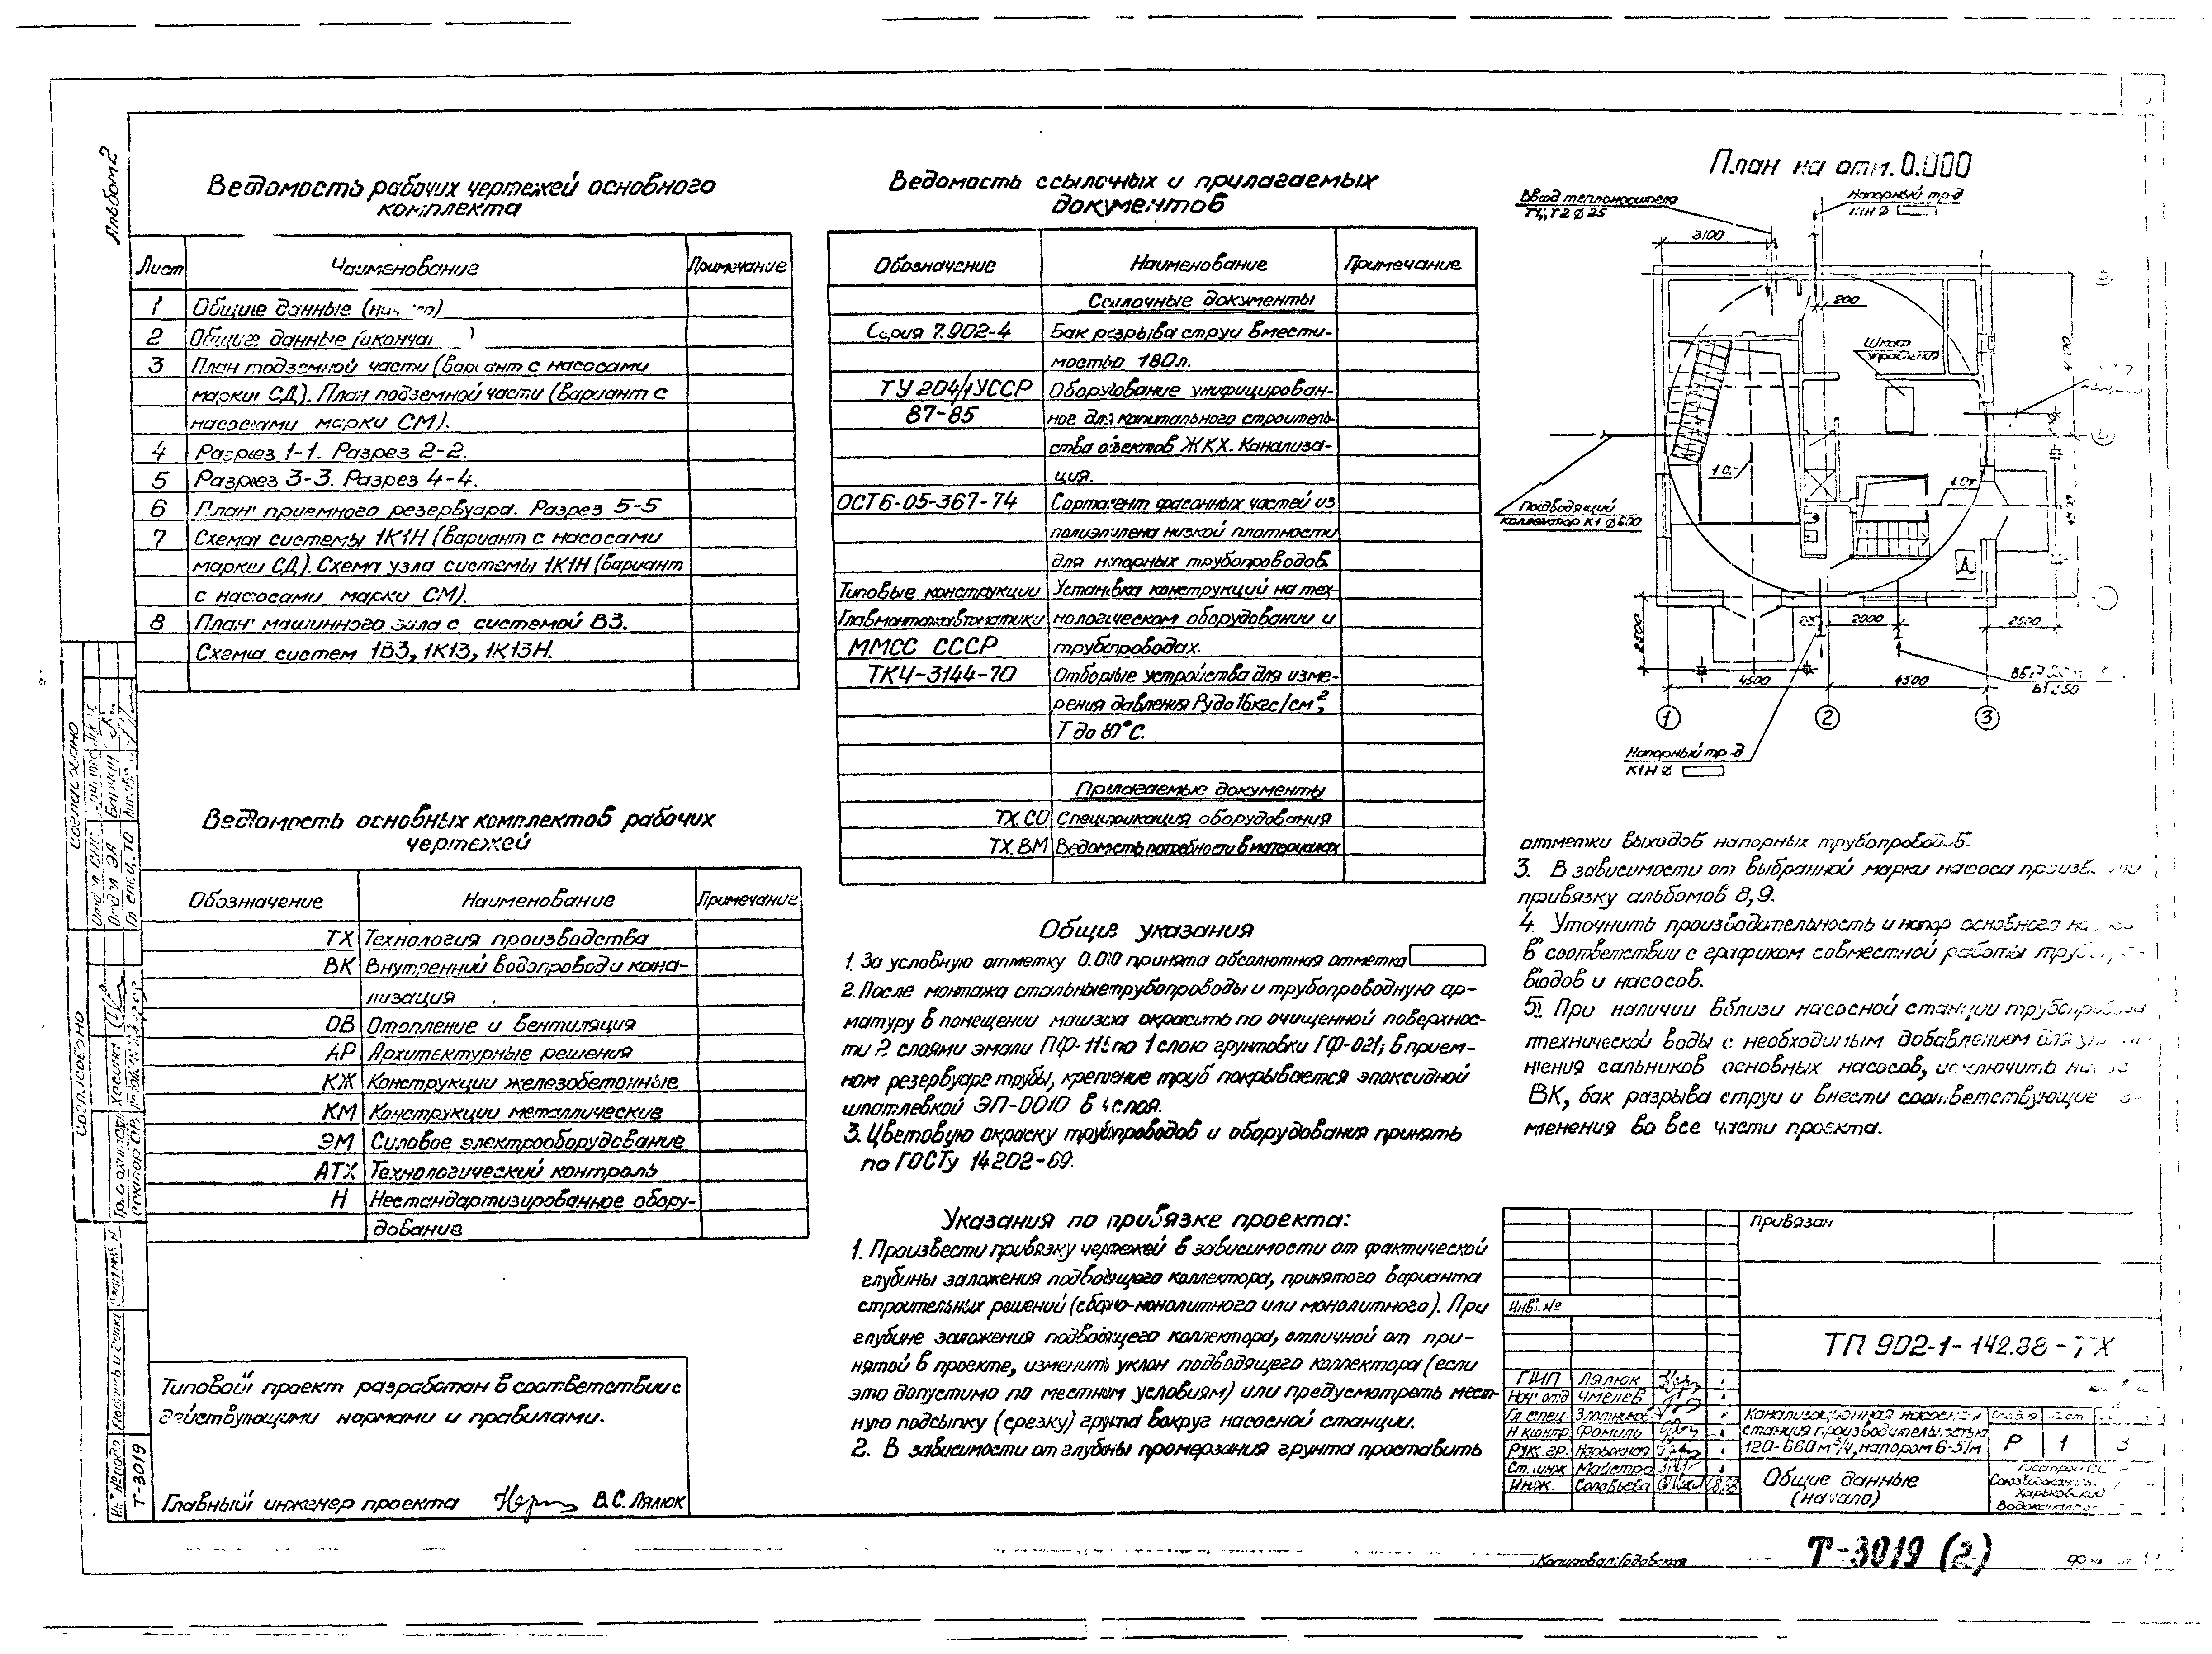 Альбом 2
Ведомость рабочих чертежей основного
комплекта
Лист Наименование Примечание
1 Общие данные
2 Общие данные
3 План подземной части (вариант с насосами
марки СД). План подземной части (вариант с
насосами марки СМ).
4 Разрез 1-1. Разрез 2-2.
5 Разрез 3-3. Разрез 4-4.
6 План приемного резервуара. Разрез 5-5
7 Схема системы 1К1Н (вариант с насосами
марки СД). Схема узла системы 1К1Н (вариант
с насосами марки СМ).
8 План машинного зала с системой В3.
Схема систем 1В3, 1К13, 1К13Н.
Ведомость основных комплектов рабочих
чертежей
Обозначение Наименование Примечание
ТХ Технология производства
ВК Внутренний водопровод и кана-
лизация
ОВ Отопление и вентиляция
АР Архитектурные решения
КЖ Конструкции железобетонные
КМ Конструкции металлические
ЭМ Силовое электрооборудование
АТХ Технологический контроль
Н Нестандартизированное обору-
дование
Типовой проект разработан в соответствии с
действующими нормами и правилами.
Главный инженер проекта В.С. Лялюк
Ведомость ссылочных и прилагаемых
документов
Обозначение Наименование Примечание
Ссылочные документы
Серия 7.902-4 Бак разрыва струи вмести-
мостью 180л.
ТУ 204/1УССР Оборудование унифицирован-
87-85 ное для капитального строитель-
ства объектов ЖКХ. Канализа-
ция.
ОСТ6-05-367-74 Сортамент фасонных частей из
полиэтилена низкой плотности
для напорных трубопроводов.
Типовые конструкции Установка конструкций на тех-
Главмонтажавтоматики нологическом оборудовании и
ММСС СССР трубопроводах.
ТКЧ-3144-70 Отборные устройства для изме-
рения давления Ру до 16кгс/см²,
Т до 80°С.
Прилагаемые документы
ТХ.СО Спецификация оборудования
ТХ.ВМ Ведомость потребности в материалах
Общие указания
1. За условную отметку 0.000 принята абсолютная отметка
2. После монтажа стальные трубопроводы и трубопроводную ар-
матуру в помещении машзала окрасить по очищенной поверхнос-
ти 2 слоями эмали ПФ-115 по 1 слою грунтовки ГФ-021; в прием-
ном резервуаре трубы, крепление труб покрывается эпоксидной
шпатлевкой ЭП-0010 в 4 слоя.
3. Цветовую окраску трубопроводов и оборудования принять
по ГОСТу 14202-69.
Указания по привязке проекта:
1. Произвести привязку чертежей в зависимости от фактической
глубины заложения подводящего коллектора, принятого варианта
строительных решений (сборно-монолитного или монолитного). При
глубине заложения подводящего коллектора, отличной от при-
нятой в проекте, изменить уклон подводящего коллектора (если
это допустимо по местным условиям) или предусмотреть мест-
ную подсыпку (срезку) грунта вокруг насосной станции.
2. В зависимости от глубины промерзания грунта проставить
План на отм. 0.000
Ввод теплоносителя
Т1, Т2 ø 25
Напорный тр-д
К1Н ø
3100
200
Шкаф
управления
1.0т
1.0т
Подводящий
коллектор К1 ø600
2500
200
2000
2500
4500
4500
1 2 3
Напорный тр-д
К1Н ø
отметки выходов напорных трубопроводов.
3. В зависимости от выбранной марки насоса произвести
привязку альбомов 8,9.
4. Уточнить производительность и напор основного
в соответствии с графиком совместной работы трубопро-
водов и насосов.
5. При наличии вблизи насосной станции трубопровода
технической воды с необходимым добавлением для
нения сальников основных насосов, исключить
ВК, бак разрыва струи и внести соответствующие
менения во все части проекта.
Привязан
Инв. №
ТП 902-1-142.88-ТХ
ГИП Лялюк
Нач. отд. Чмелев
Гл. спец. Злотников
Н. контр. Фомиль
Рук. гр.
Ст. инж. Майстро
Инж. Соловьева
Канализационная насосная
станция производительностью
120-660 м³/ч, напором 6-51м
Р 1 3
Общие данные
(начало)
Харьковский
Водоканалпроект
Согласовано
Согласовано
Т-3019
Копировал: Годовская
Т-3019 (2)